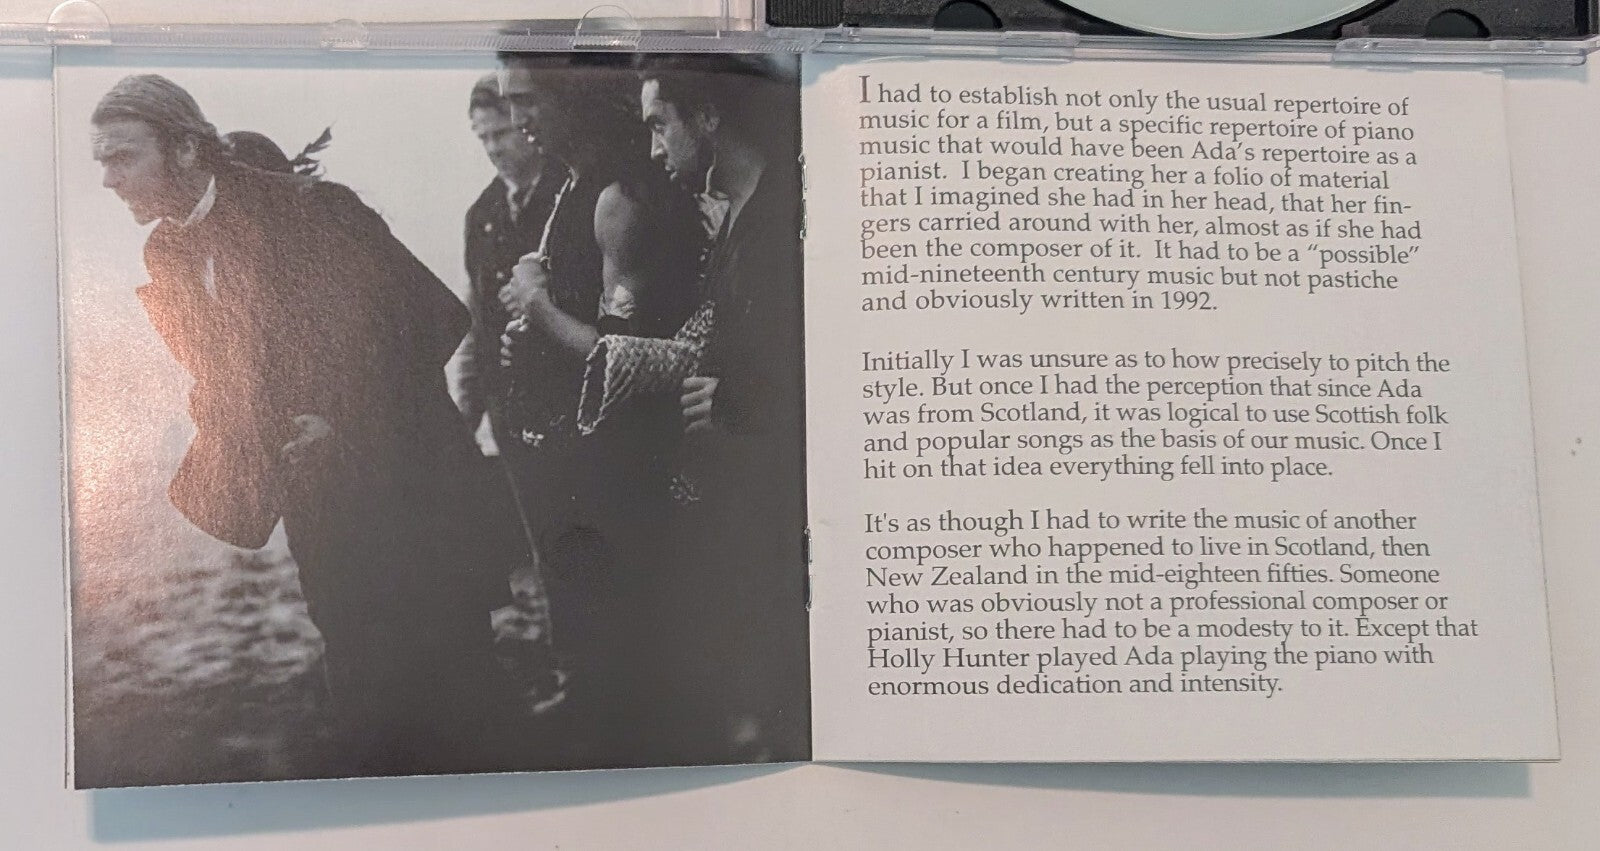 I had to establish not only the usual repertoire of
music for a film, but a specific repertoire of piano
music that would have been Ada's repertoire as a
pianist. I began creating her a folio of material
that I imagined she had in her head, that her fin-
gers carried around with her, almost as if she had
been the composer of it. It had to be a "possible"
mid-nineteenth century music but not pastiche
and obviously written in 1992.
Initially I was unsure as to how precisely to pitch the
style. But once I had the perception that since Ada
was from Scotland, it was logical to use Scottish folk
and popular songs as the basis of our music. Once I
hit on that idea everything fell into place.
It's as though I had to write the music of another
composer who happened to live in Scotland, then
New Zealand in the mid-eighteen fifties. Someone
who was obviously not a professional composer or
pianist, so there had to be a modesty to it. Except that
Holly Hunter played Ada playing the piano with
enormous dedication and intensity.